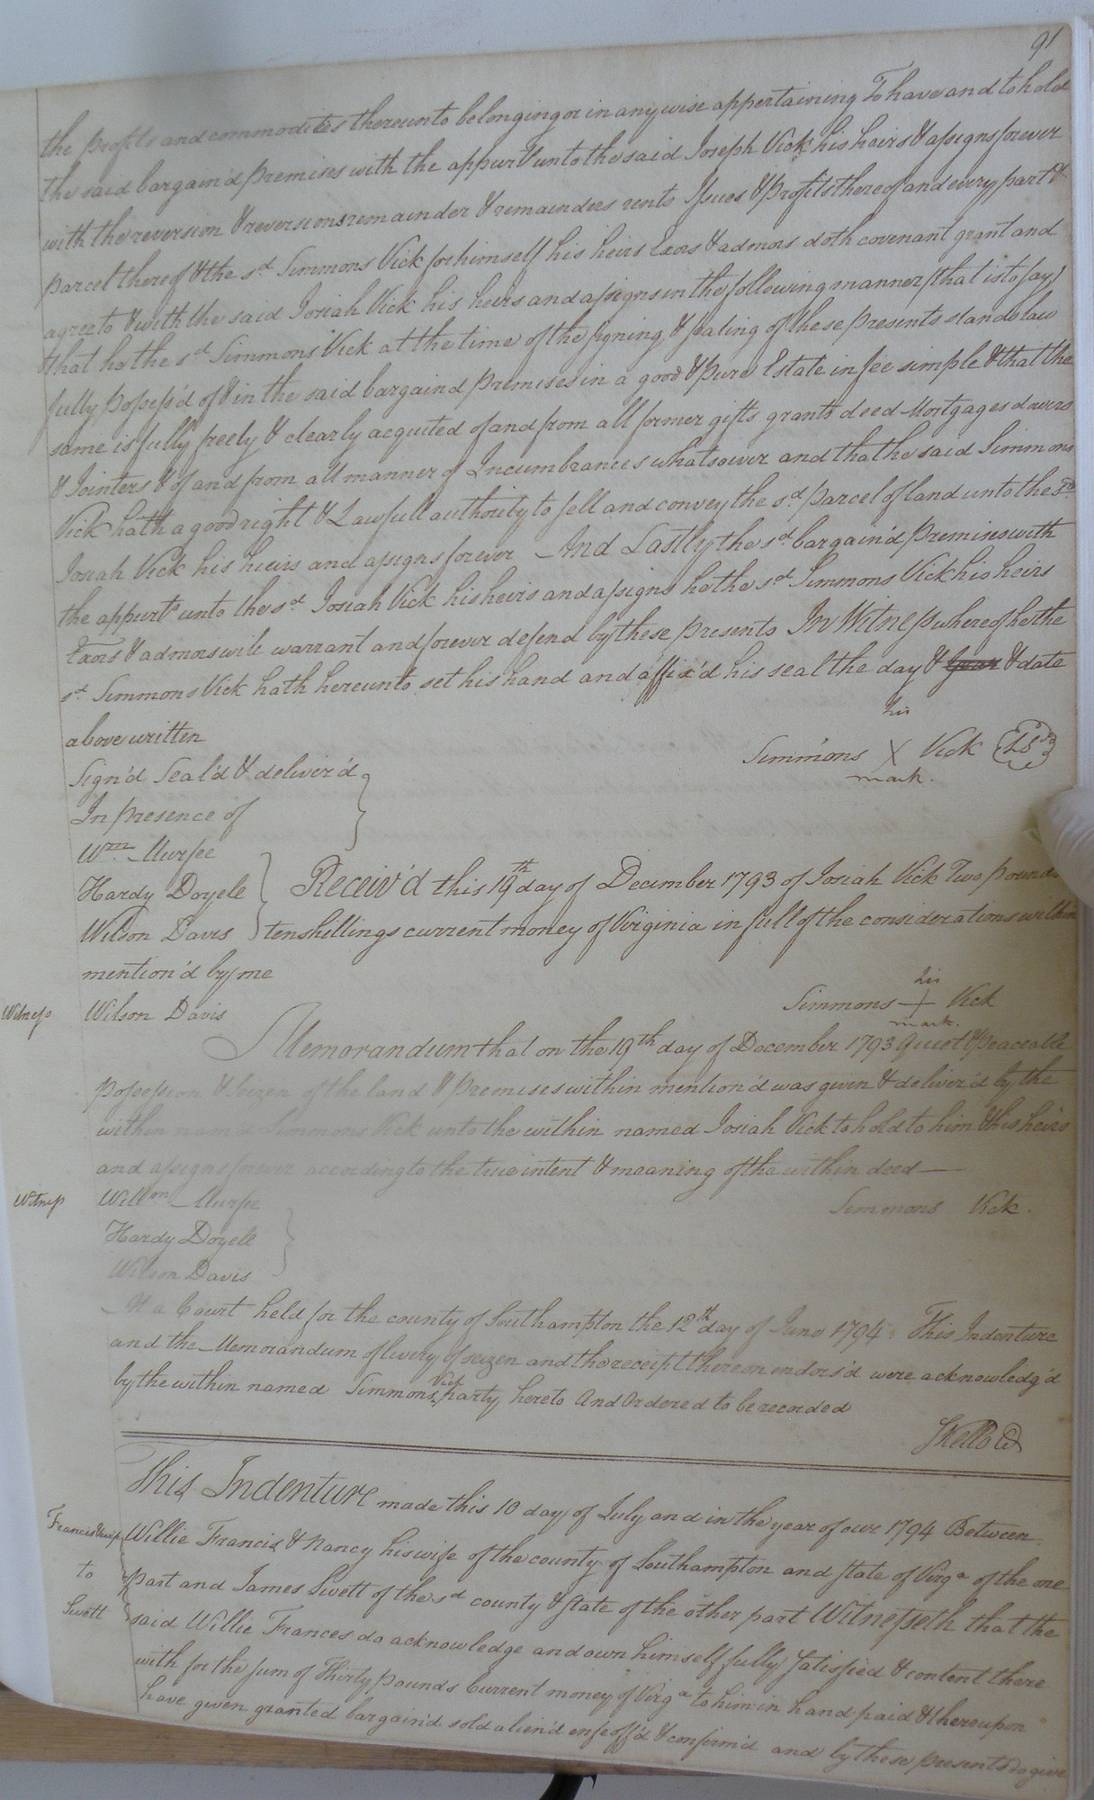 91
the profits and commodities thereunto belonging or in any wise appertaining To have and to hold
the said bargain'd premises with the appurts unto the said Joseph Vick his heirs & assigns forever
with the reversion & reversions remainder & remainders rents Issues & profits thereof and every part &
parcel thereof & the sd Simmons Vick for himself his heirs Exors & admors doth covenant grant and
agree to & with the said Josiah Vick his heirs and assigns in the following manner (that is to say)
that he the sd Simmons Vick at the time of the signing & sealing of these presents stands law
fully possess'd of & in the said bargaind premises in a good & pure Estate in fee simple & that the
same is fully freely & clearly acquited of and from all former gifts grants deed Mortgages dowers
& Jointers & of and from all manner of Incumbrances whatsoever and that he said Simmons
Vick hath a good right & Lawfull authority to sell and convey the sd parcel of land unto the sd
Josiah Vick his heirs and assigns forever And Lastly the sd bargain'd premises with
the appurts unto the sd Josiah Vick his heirs and assigns he the sd Simmons Vick his heirs
Exors & admors will warrant and forever defend by these presents In Witness whereof he the
sd Simmons Vick hath hereunto set his hand and affix'd his seal the day & year & date
above written
his
Simmons X Vick (LS)
mark.
Sign'd Seal'd & deliver'd
In presence of
Wm Murfee
Hardy Doyele
Wilson Davis
Receiv'd this 19th day of December 1793 of Josiah Vick Two pounds
ten shillings current money of Virginia in full of the considerations within
mention'd by me
his
Witness Wilson Davis Simmons + Vick
mark.
Memorandum that on the 19th day of December 1793 Quiet & peaceable
possession & seizen of the land & premises within mention'd was given & deliver'd by the
within nam'd Simmons Vick unto the within named Josiah Vick to hold to him & his heirs
and assigns forever according to the true intent & meaning of the within deed
Witness Willm Murfee Simmons Vick.
Hardy Doyele
Wilson Davis
At a Court held for the county of Southampton the 12th day of June 1794 This Indenture
and the Memorandum of livery of seizen and the receipt thereon endors'd were acknowledg'd
by the within named Simmons Vick party hereto And Ordered to be recorded
This Indenture made this 10 day of July and in the year of our 1794 Between
Francis & wife
to
Swett
Willie Francis & Nancy his wife of the county of Southampton and state of Virga of the one
part and James Swett of the sd county & state of the other part Witnesseth that the
said Willie Frances do acknowledge and own himself fully satisfied & content there
with for the sum of Thirty pounds Current money of Virga to him in hand paid & thereupon
have given granted bargain'd sold alien'd enfeoff'd & confirm'd and by these presents do give